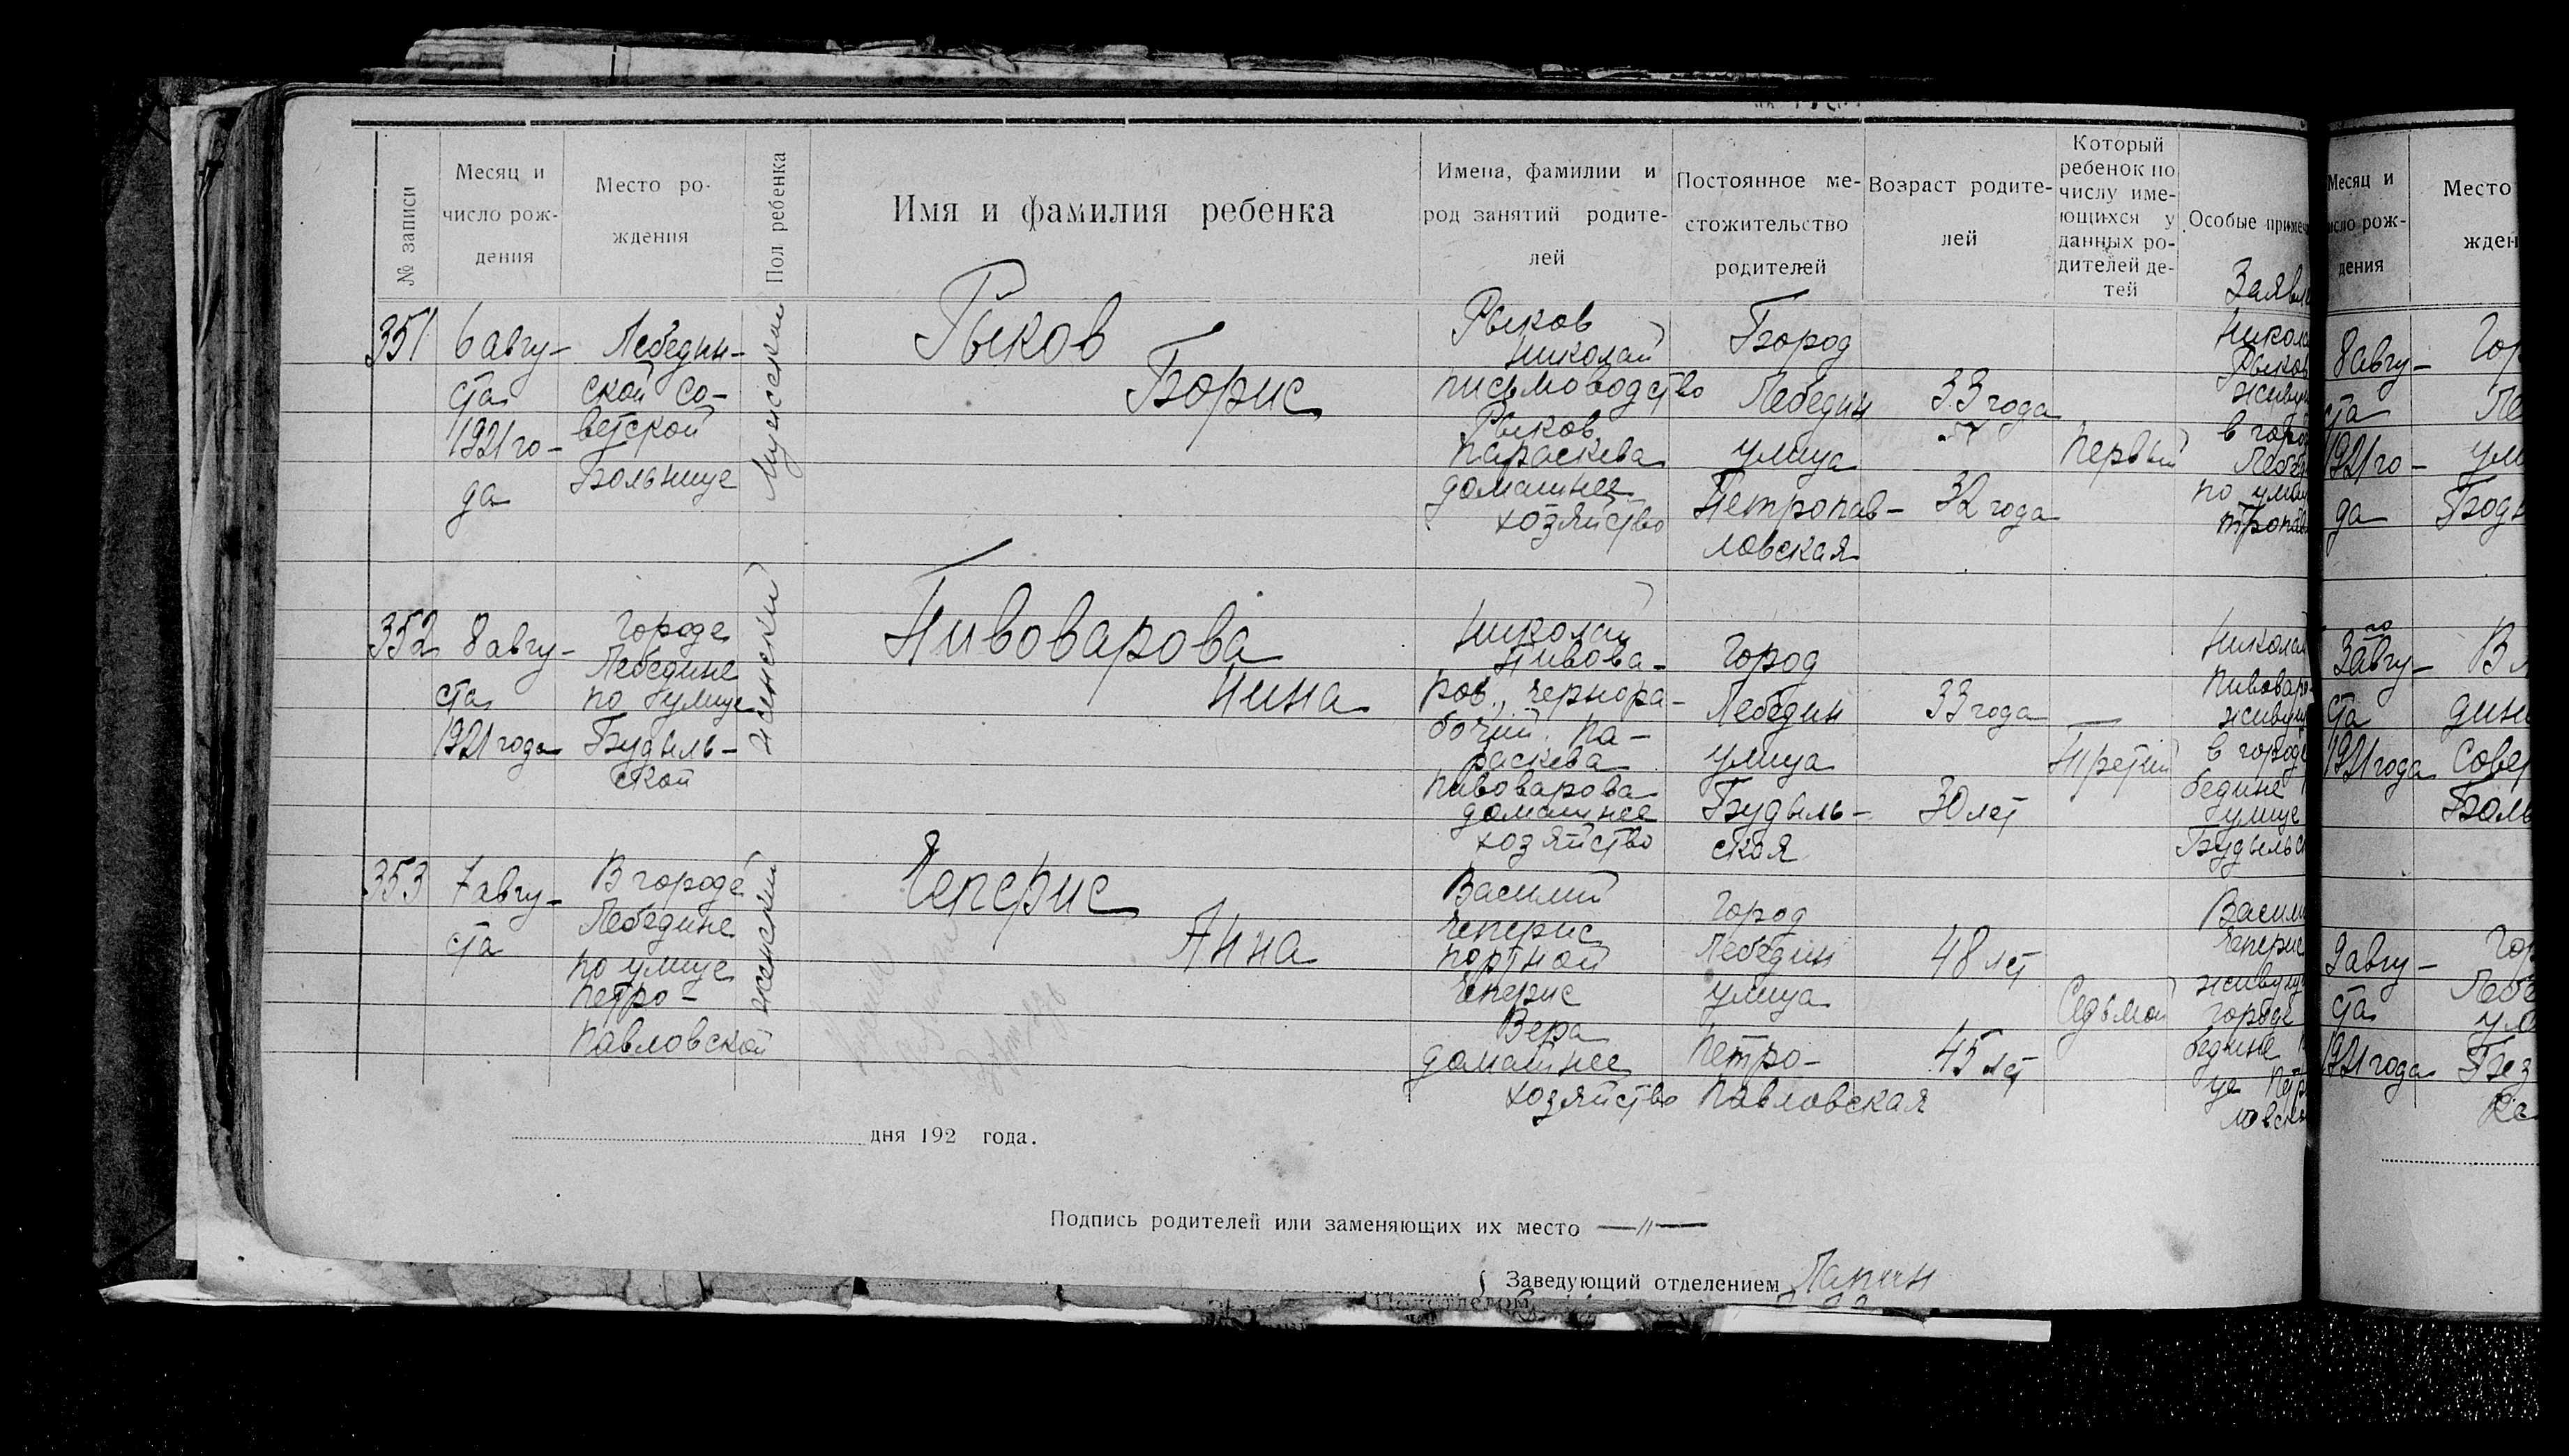 № записи
Месяц и
число рож-
дения
Место ро-
ждения
Пол ребенка
Имя и фамилия ребенка
Имена, фамилии и
род занятий родите-
лей
Постоянное ме-
стожительство
родителей
Возраст родите-
лей
Который
ребенок по
числу име-
ющихся у
данных ро-
дителей де-
тей
Особые примеч
351
6 авгу-
ста
1921 го-
да
Лебедин-
ской Со-
ветской
Больнице
Мужеский
Рыков
Борис
Рыков
Николай
письмоводство
Рыков
Параскева
домашнее
хозяйство
Город
Лебедин
улица
Петропав-
ловская
33 года
32 года
Первый
Заявл
Никола
Рыков
живу
в горо
Лебед
по ули
тропав
352
8 авгу-
ста
1921 года
Городе
Лебедине
по улице
Будыль-
ской
женский
Пивоварова
Нина
Николай
Пивова-
ров, чернора-
бочий. Па-
раскева
Пивоварова
домашнее
хозяйство
Город
Лебедин
улица
Будыль-
ская
33 года
30 лет
Третий
Николай
Пивовар
живущ
в городе
бедине
улице
Будыльс
353
7 авгу-
ста
В городе
Лебедине
по улице
Петро-
Павловской
женский
Чеперис
Анна
Василий
Чеперис
портной
Чеперис
Вера
домашнее
хозяйство
Город
Лебедин
улица
Петро-
Павловская
48 лет
45 лет
Седьмой
Васили
Чеперис
живущ
городе
бедине
це Пет
ловско
дня 192 года.
Подпись родителей или заменяющих их место —〃—
Заведующий отделением
Месяц и
число рож-
дения
Место
жден
8 авгу-
ста
1921 го-
да
Гор
Ле
ули
3го авгу-
ста
1921 года
В Л
дин
Совет
Боль
9 авгу-
ста
1921 года
Гор
Лебе
ул